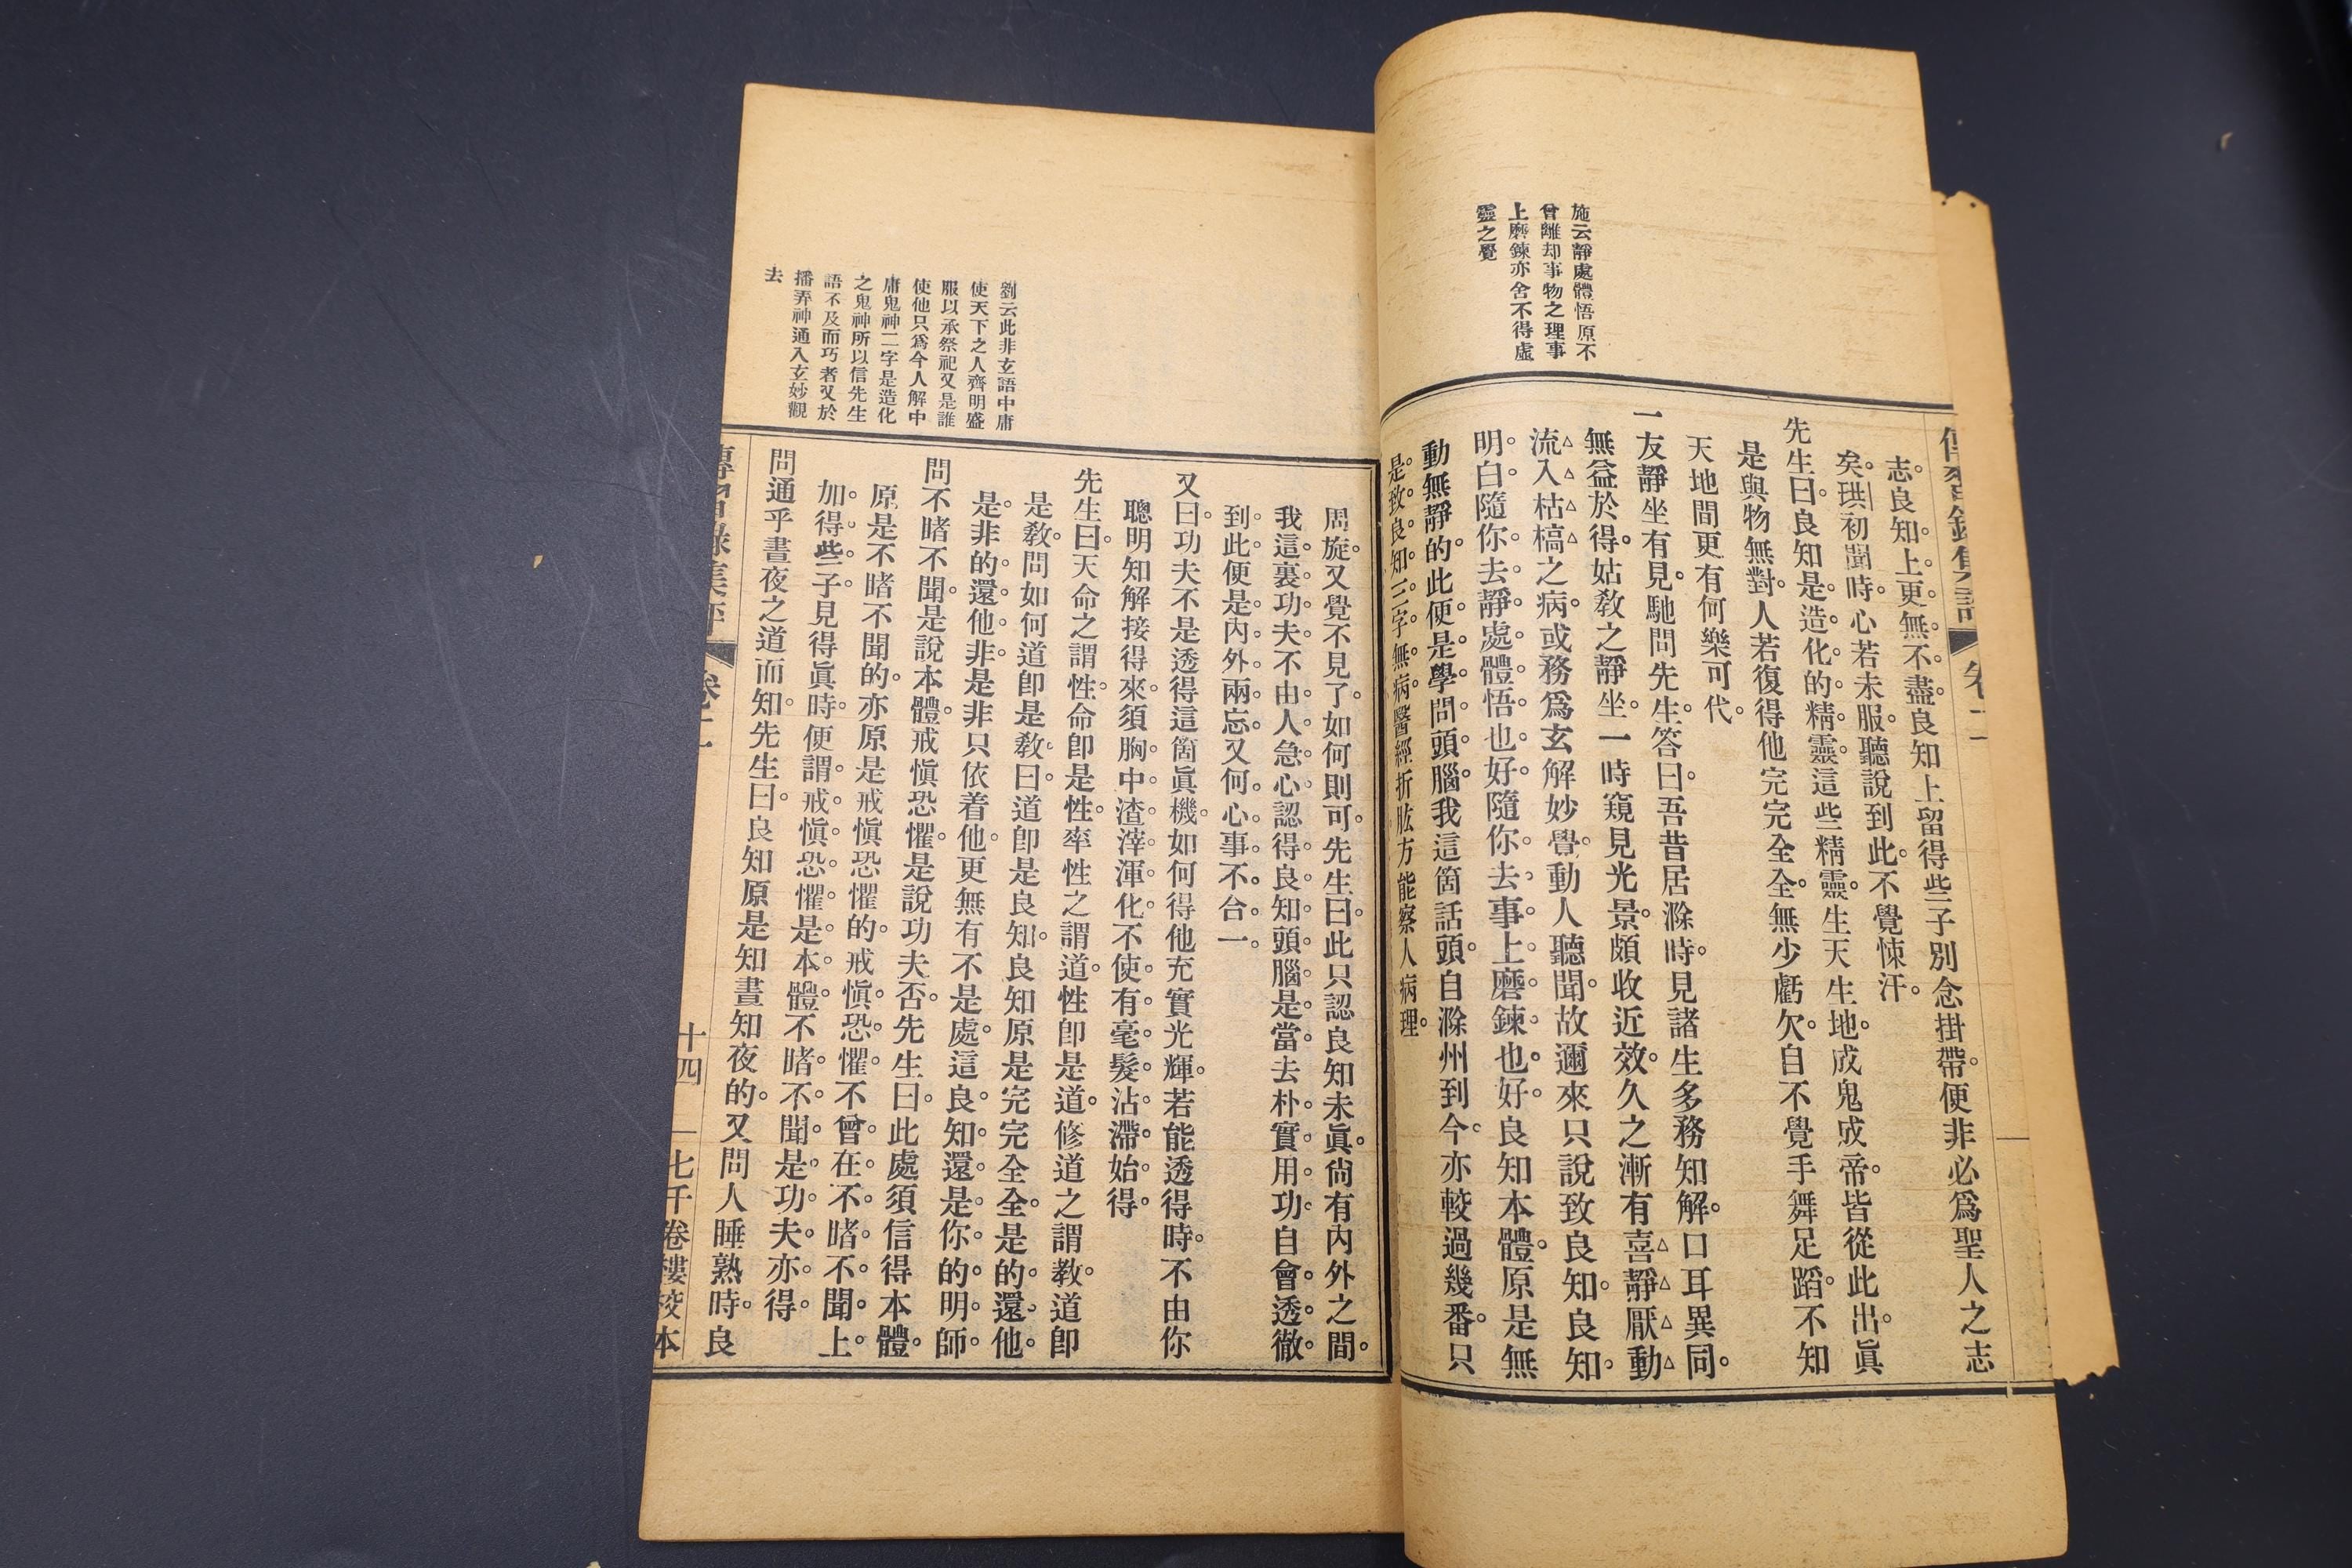 傳習錄集評
卷二
志。良知。上。更。無。不。盡。良知上留得些子別念掛帶。便非必爲聖人之志
矣。珙初聞時。心若未服。聽說到此。不覺悚汗。
先生曰。良知是。造。化。的。精。靈。這些精靈。生天生地。成鬼成帝。皆從此出。眞
是與物無對。人若復得他完完全全。無少虧欠。自不覺手舞足蹈。不知
天地間更有何樂可代。
一友靜坐有見。馳問先生。答曰。吾昔居滁時。見諸生多務知解。口耳異同。
無益於得。姑敎之靜坐。一時窺見光景。頗收近效。久之漸有喜靜厭動
流入枯槁之病。或務爲玄解妙覺。動人聽聞。故邇來只說致良知。良知。
明。白。隨。你。去。靜。處。體。悟。也。好。隨。你。去。事。上。磨。鍊。也。好。良知本體。原是無
動無靜的。此便是。學。問。頭。腦。我這箇話頭。自滁州到今。亦較過幾番。只
是。致。良。知。三。字。無。病。醫經折肱。方能察人病理。
施云靜處體悟原不
曾離却事物之理事
上磨鍊亦舍不得虛
靈之覺
周旋。又覺不見了。如何則可。先生曰。此只認良知未眞。尙有內外之間。
我。這。裏。功。夫。不。由。人。急。心。認。得。良。知。頭。腦。是。當。去。朴。實。用。功。自。會。透。徹。
到。此。便。是。內。外。兩。忘。又。何。心。事。不。合。一。
又曰。功夫不是透得這箇眞機。如何得他充實光輝。若能透得時。不由你
聰明知解接得來。須。胸。中。渣。滓。渾。化。不。使。有。毫。髮。沾。滯。始。得。
先生曰。天命之謂性。命卽是性。率性之謂道。性卽是道。修道之謂敎。道卽
是敎。問如何道卽是敎。曰。道卽是良知。良知原是完完全全。是的。還他
是。非。的。還。他。非。是非只依着他。更無有不是處。這。良。知。還。是。你。的。明。師。
問不睹不聞。是說本體。戒愼恐懼。是說功夫否。先生曰。此處須信得本體。
原是不睹不聞的。亦原是戒愼恐懼的。戒愼。恐。懼。不。曾。在。不。睹。不。聞。上。
加。得。些。子。見得眞時。便謂。戒。愼。恐。懼。是。本。體。不。睹。不。聞。是。功。夫。亦。得。
問通乎晝夜之道而知。先生曰。良知原是知晝知夜的。又問人睡熟時。良
劉云此非玄語中庸
使天下之人齊明盛
服以承祭祀又是誰
使他只爲今人解中
庸鬼神二字是造化
之鬼神所以信先生
語不及而巧者又於
播弄神通入玄妙觀
去
傳習錄集評
卷二
十四
七千卷樓校本